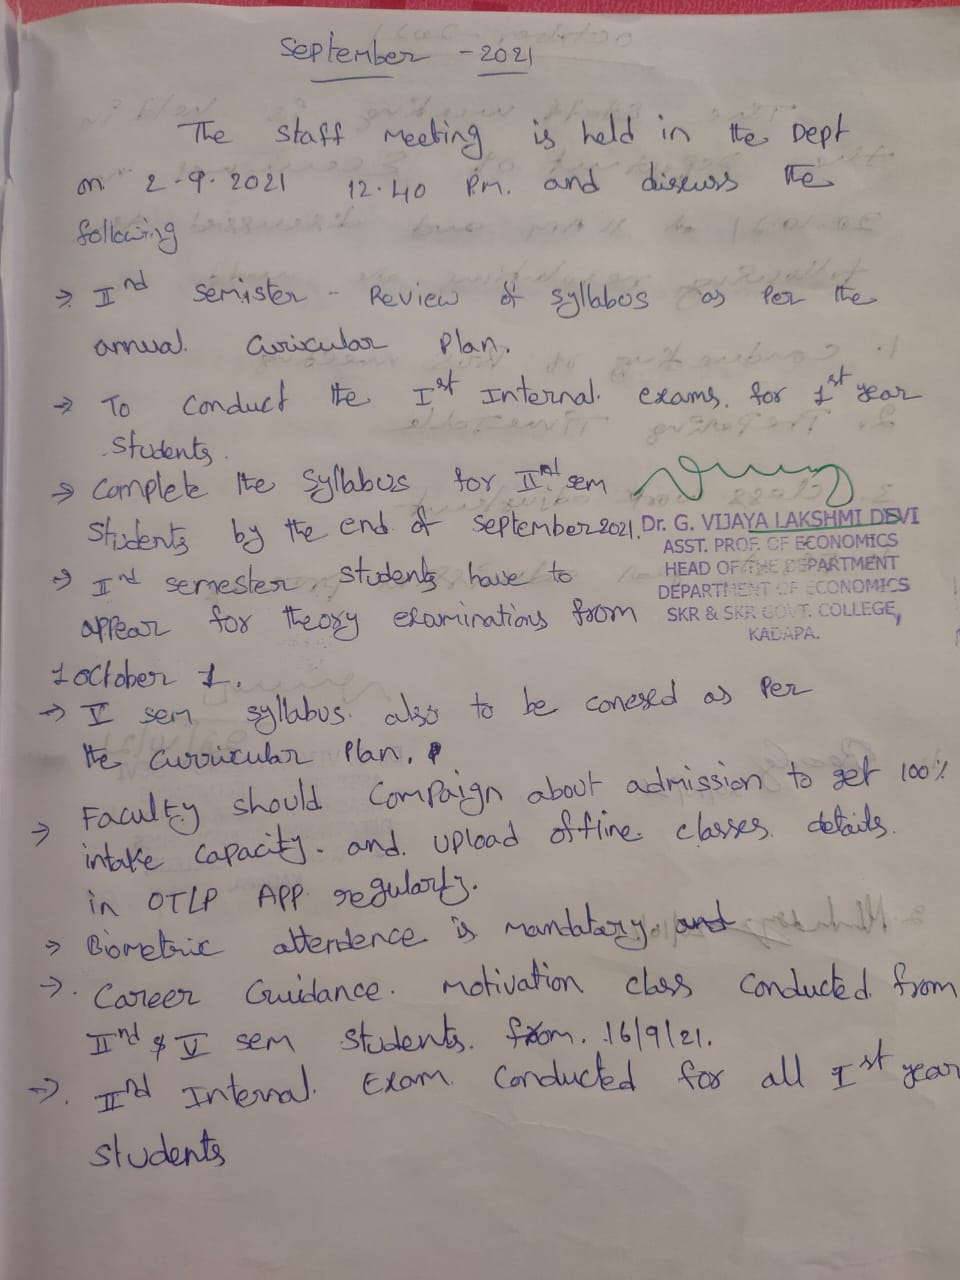 September - 2021
The staff meeting is held in the Dept
on 2-9-2021 12.40 P.M. and discuss the
following
→ IInd Semister - Review of syllabus as per the
annual. Curicular Plan.
→ To Conduct the Ist Internal. exams. for 1st year
students.
→ Complete the syllabus for IInd sem
students by the end of September 2021.
Dr. G. VIJAYA LAKSHMI DEVI
ASST. PROF. OF ECONOMICS
HEAD OF THE DEPARTMENT
DEPARTMENT OF ECONOMICS
SKR & SKR GOVT. COLLEGE,
KADAPA.
→ IInd semester students have to
appear for theory examinations from
1 October 1.
→ V sem syllabus. also to be as Per
the curricular Plan.
→ Faculty should Compaign about admission to get 100%
intake Capacity. and. upload offline. classes. details.
in OTLP APP regularly.
→ Biometric attendence is mandatory and
→. Career Guidance. motivation class conducted from
IInd & V sem students. from. 16/9/21.
→. IInd Internal. Exam. Conducted for all Ist year
students